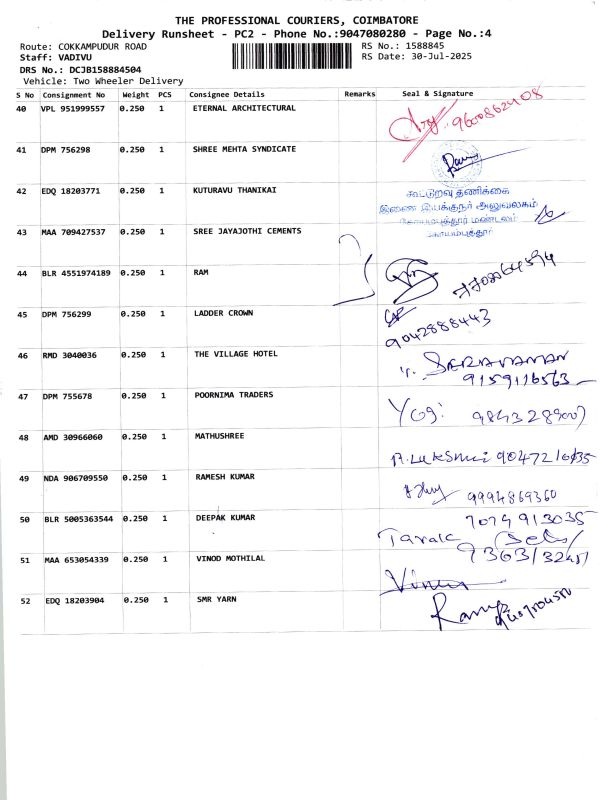 THE PROFESSIONAL COURIERS, COIMBATORE
Delivery Runsheet - PC2 - Phone No.:9047080280 - Page No.:4
Route: COKKAMPUDUR ROAD RS No.: 1588845
Staff: VADIVU RS Date: 30-Jul-2025
DRS No.: DCJB158884504
Vehicle: Two Wheeler Delivery
S No Consignment No Weight PCS Consignee Details Remarks Seal & Signature
40 VPL 951999557 0.250 1 ETERNAL ARCHITECTURAL 9600862408
41 DPM 756298 0.250 1 SHREE MEHTA SYNDICATE
42 EDQ 18203771 0.250 1 KUTURAVU THANIKAI கூட்டுறவு தணிக்கை
இணை இயக்குநர் அலுவலகம்
கோயம்புத்தூர் மண்டலம்
கோயம்புத்தூர்
43 MAA 709427537 0.250 1 SREE JAYAJOTHI CEMENTS
44 BLR 4551974189 0.250 1 RAM
45 DPM 756299 0.250 1 LADDER CROWN 9042888443
46 RMD 3040036 0.250 1 THE VILLAGE HOTEL SARAVANAN
9159116563
47 DPM 755678 0.250 1 POORNIMA TRADERS Yogi
48 AMD 30966060 0.250 1 MATHUSHREE
49 NDA 906709550 0.250 1 RAMESH KUMAR 9994869360
50 BLR 5005363544 0.250 1 DEEPAK KUMAR 7079913035
51 MAA 653054339 0.250 1 VINOD MOTHILAL
52 EDQ 18203904 0.250 1 SMR YARN